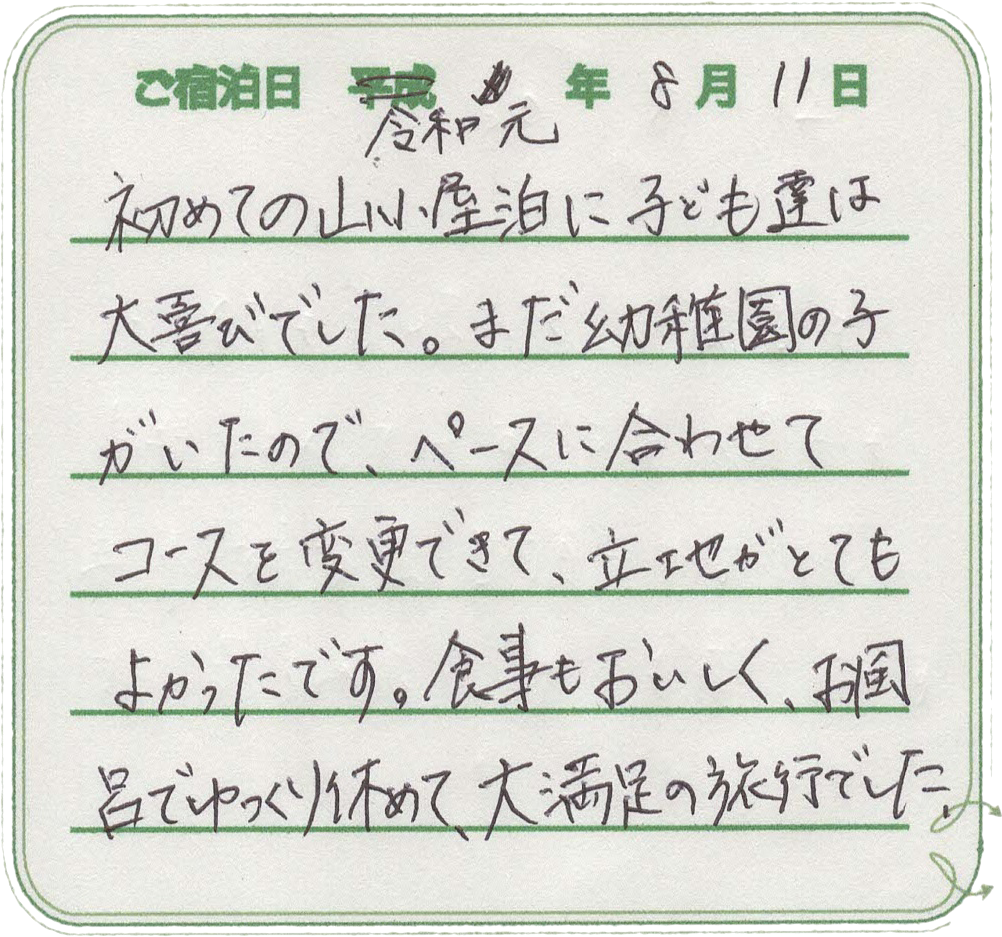 ご宿泊日 平成 年 8月 11日
令和 元
初めての山小屋泊に子ども達は
大喜びでした。まだ幼稚園の子
がいたので、ペースに合わせて
コースを変更できて、立地がとても
よかったです。食事もおいしく、お風
呂でゆっくり休めて、大満足の旅行でした。